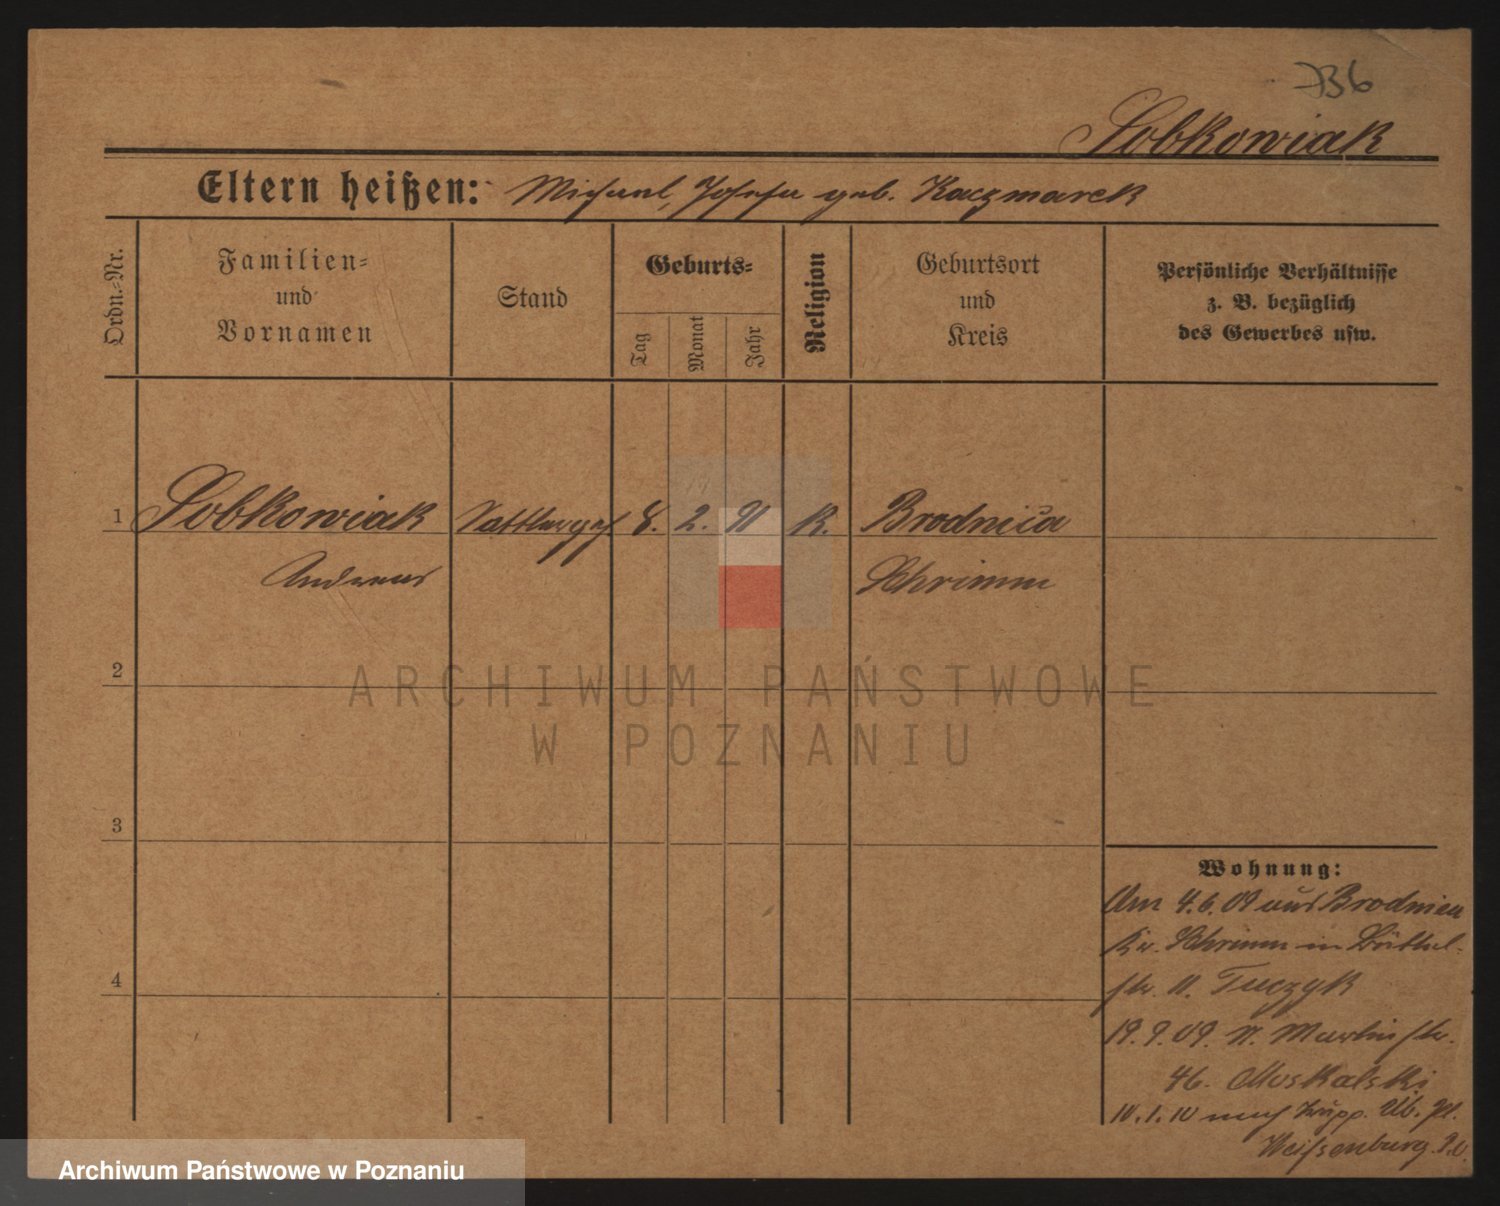 736
Sobkowiak
Eltern heißen: Michael, Josefa geb. Kaczmarek
Ordn.-Nr.
Familien-
und
Vornamen
Stand
Geburts-
Tag
Monat
Jahr
Religion
Geburtsort
und
Kreis
Persönliche Verhältnisse
z. B. bezüglich
des Gewerbes usw.
1 Sobkowiak Sattlerges. 8. 2. 91 K. Brodnica
Andreas Schrimm
2
ARCHIWUM PAŃSTWOWE
W POZNANIU
3
Wohnung:
Am 4.6.09 aus Brodnica
Kr. Schrimm in
str. 11. Tuczyk
4
19.9.09. n. Martinstr.
46. Moskalski
10.1.10 nach Trupp. Üb. Pl.
Weißenburg
Archiwum Państwowe w Poznaniu